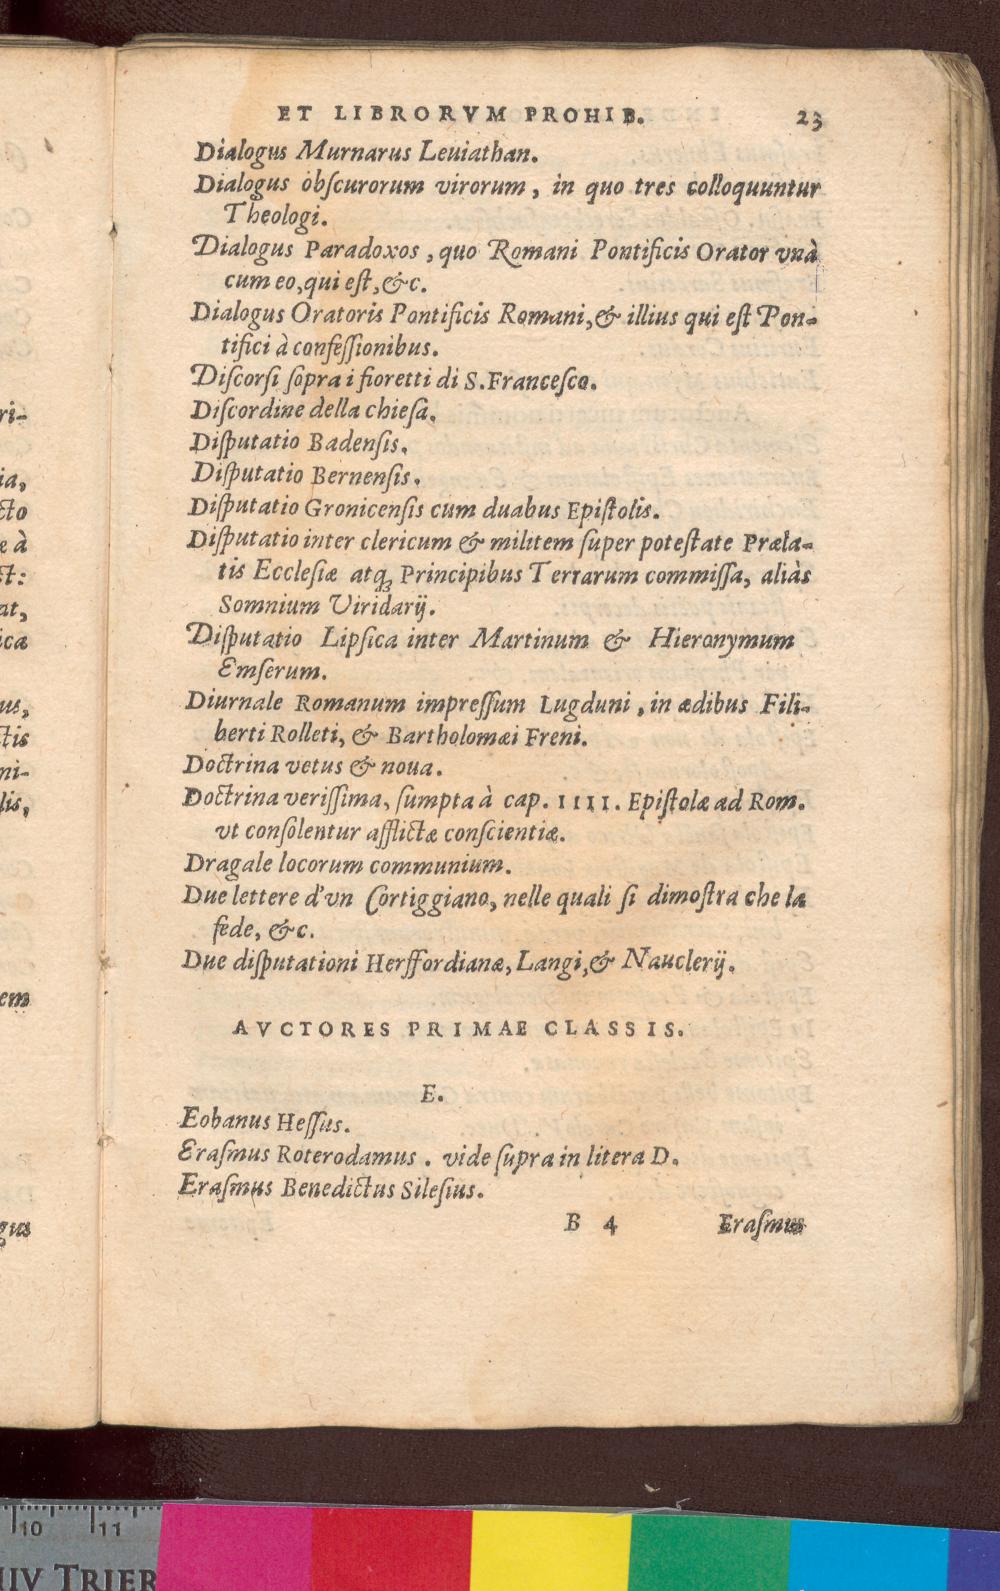 ET LIBRORVM PROHIB. 23
Dialogus Murnarus Leuiathan.
Dialogus obſcurorum virorum, in quo tres colloquuntur
Theologi.
Dialogus Paradoxos, quo Romani Pontificis Orator vnà
cum eo, qui eſt, &c.
Dialogus Oratoris Pontificis Romani, & illius qui eſt Pon-
tifici à confeſſionibus.
Diſcorſi ſopra i fioretti di S. Franceſco.
Diſcordine della chieſa.
Diſputatio Badenſis.
Diſputatio Bernenſis.
Diſputatio Gronicenſis cum duabus Epiſtolis.
Diſputatio inter clericum & militem ſuper poteſtate Præla-
tis Eccleſiæ atq; Principibus Terrarum commiſſa, aliàs
Somnium Viridarij.
Diſputatio Lipſica inter Martinum & Hieronymum
Emſerum.
Diurnale Romanum impreſſum Lugduni, in ædibus Fili-
berti Rolleti, & Bartholomæi Freni.
Doctrina vetus & noua.
Doctrina veriſſima, ſumpta à cap. IIII. Epiſtolæ ad Rom.
vt conſolentur afflictæ conſcientiæ.
Dragale locorum communium.
Due lettere d'vn Cortiggiano, nelle quali ſi dimoſtra che la
fede, &c.
Due diſputationi Herffordianæ, Langi, & Nauclerij.
AVCTORES PRIMAE CLASSIS.
E.
Eobanus Heſſus.
Eraſmus Roterodamus. vide ſupra in litera D.
Eraſmus Benedictus Sileſius.
B 4 Eraſmus
ri-
ia,
cto
æ à
ſt:
at,
ica
us,
ctis
ni-
lis,
em
gus
10 11
IV TRIER